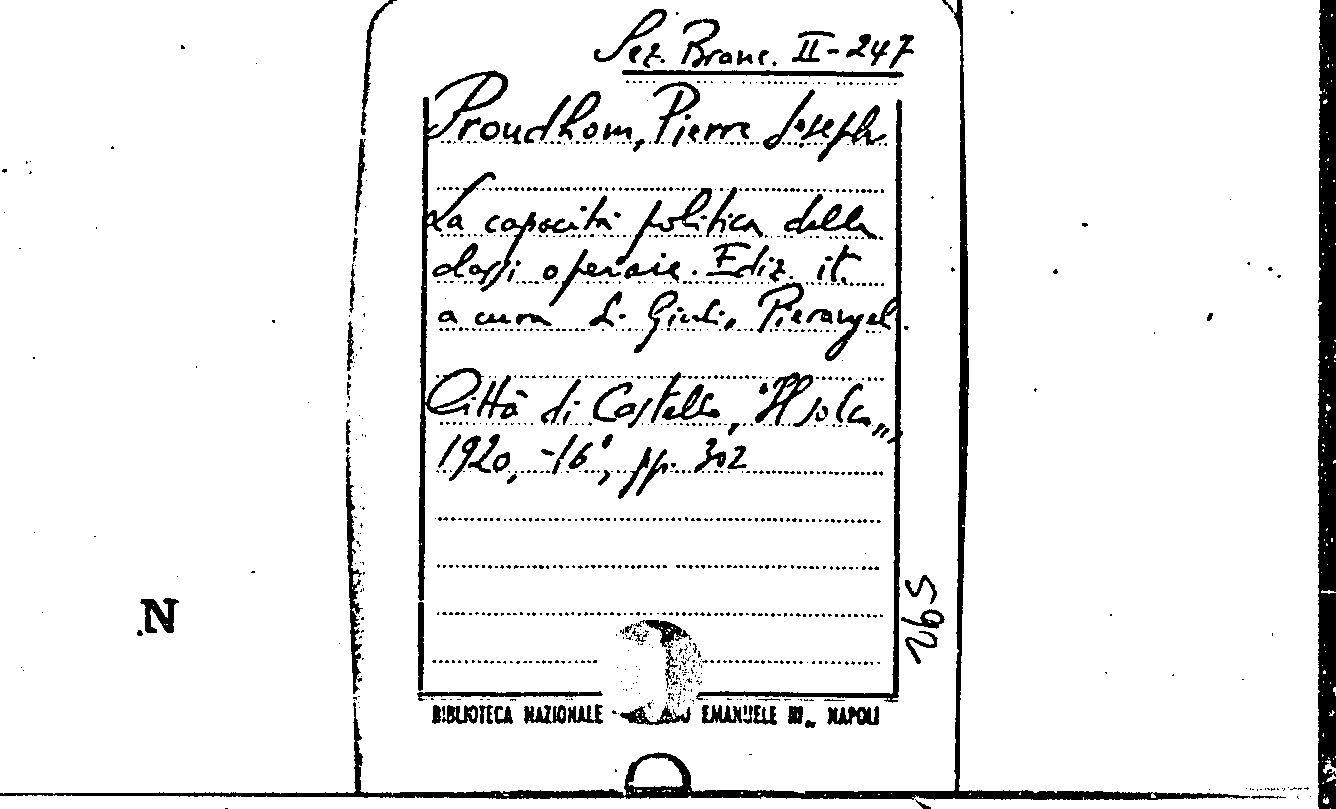 Sez. Branc. II-247
Proudhom, Pierre Joseph
La capacità politica della
classi operaie. Ediz. it.
a cura di Giuli, Pierangel.
Città di Castello, "Il Solco",
1920, -16°, pp. 302
N
BIBLIOTECA NAZIONALE EMANUELE III„ NAPOLI